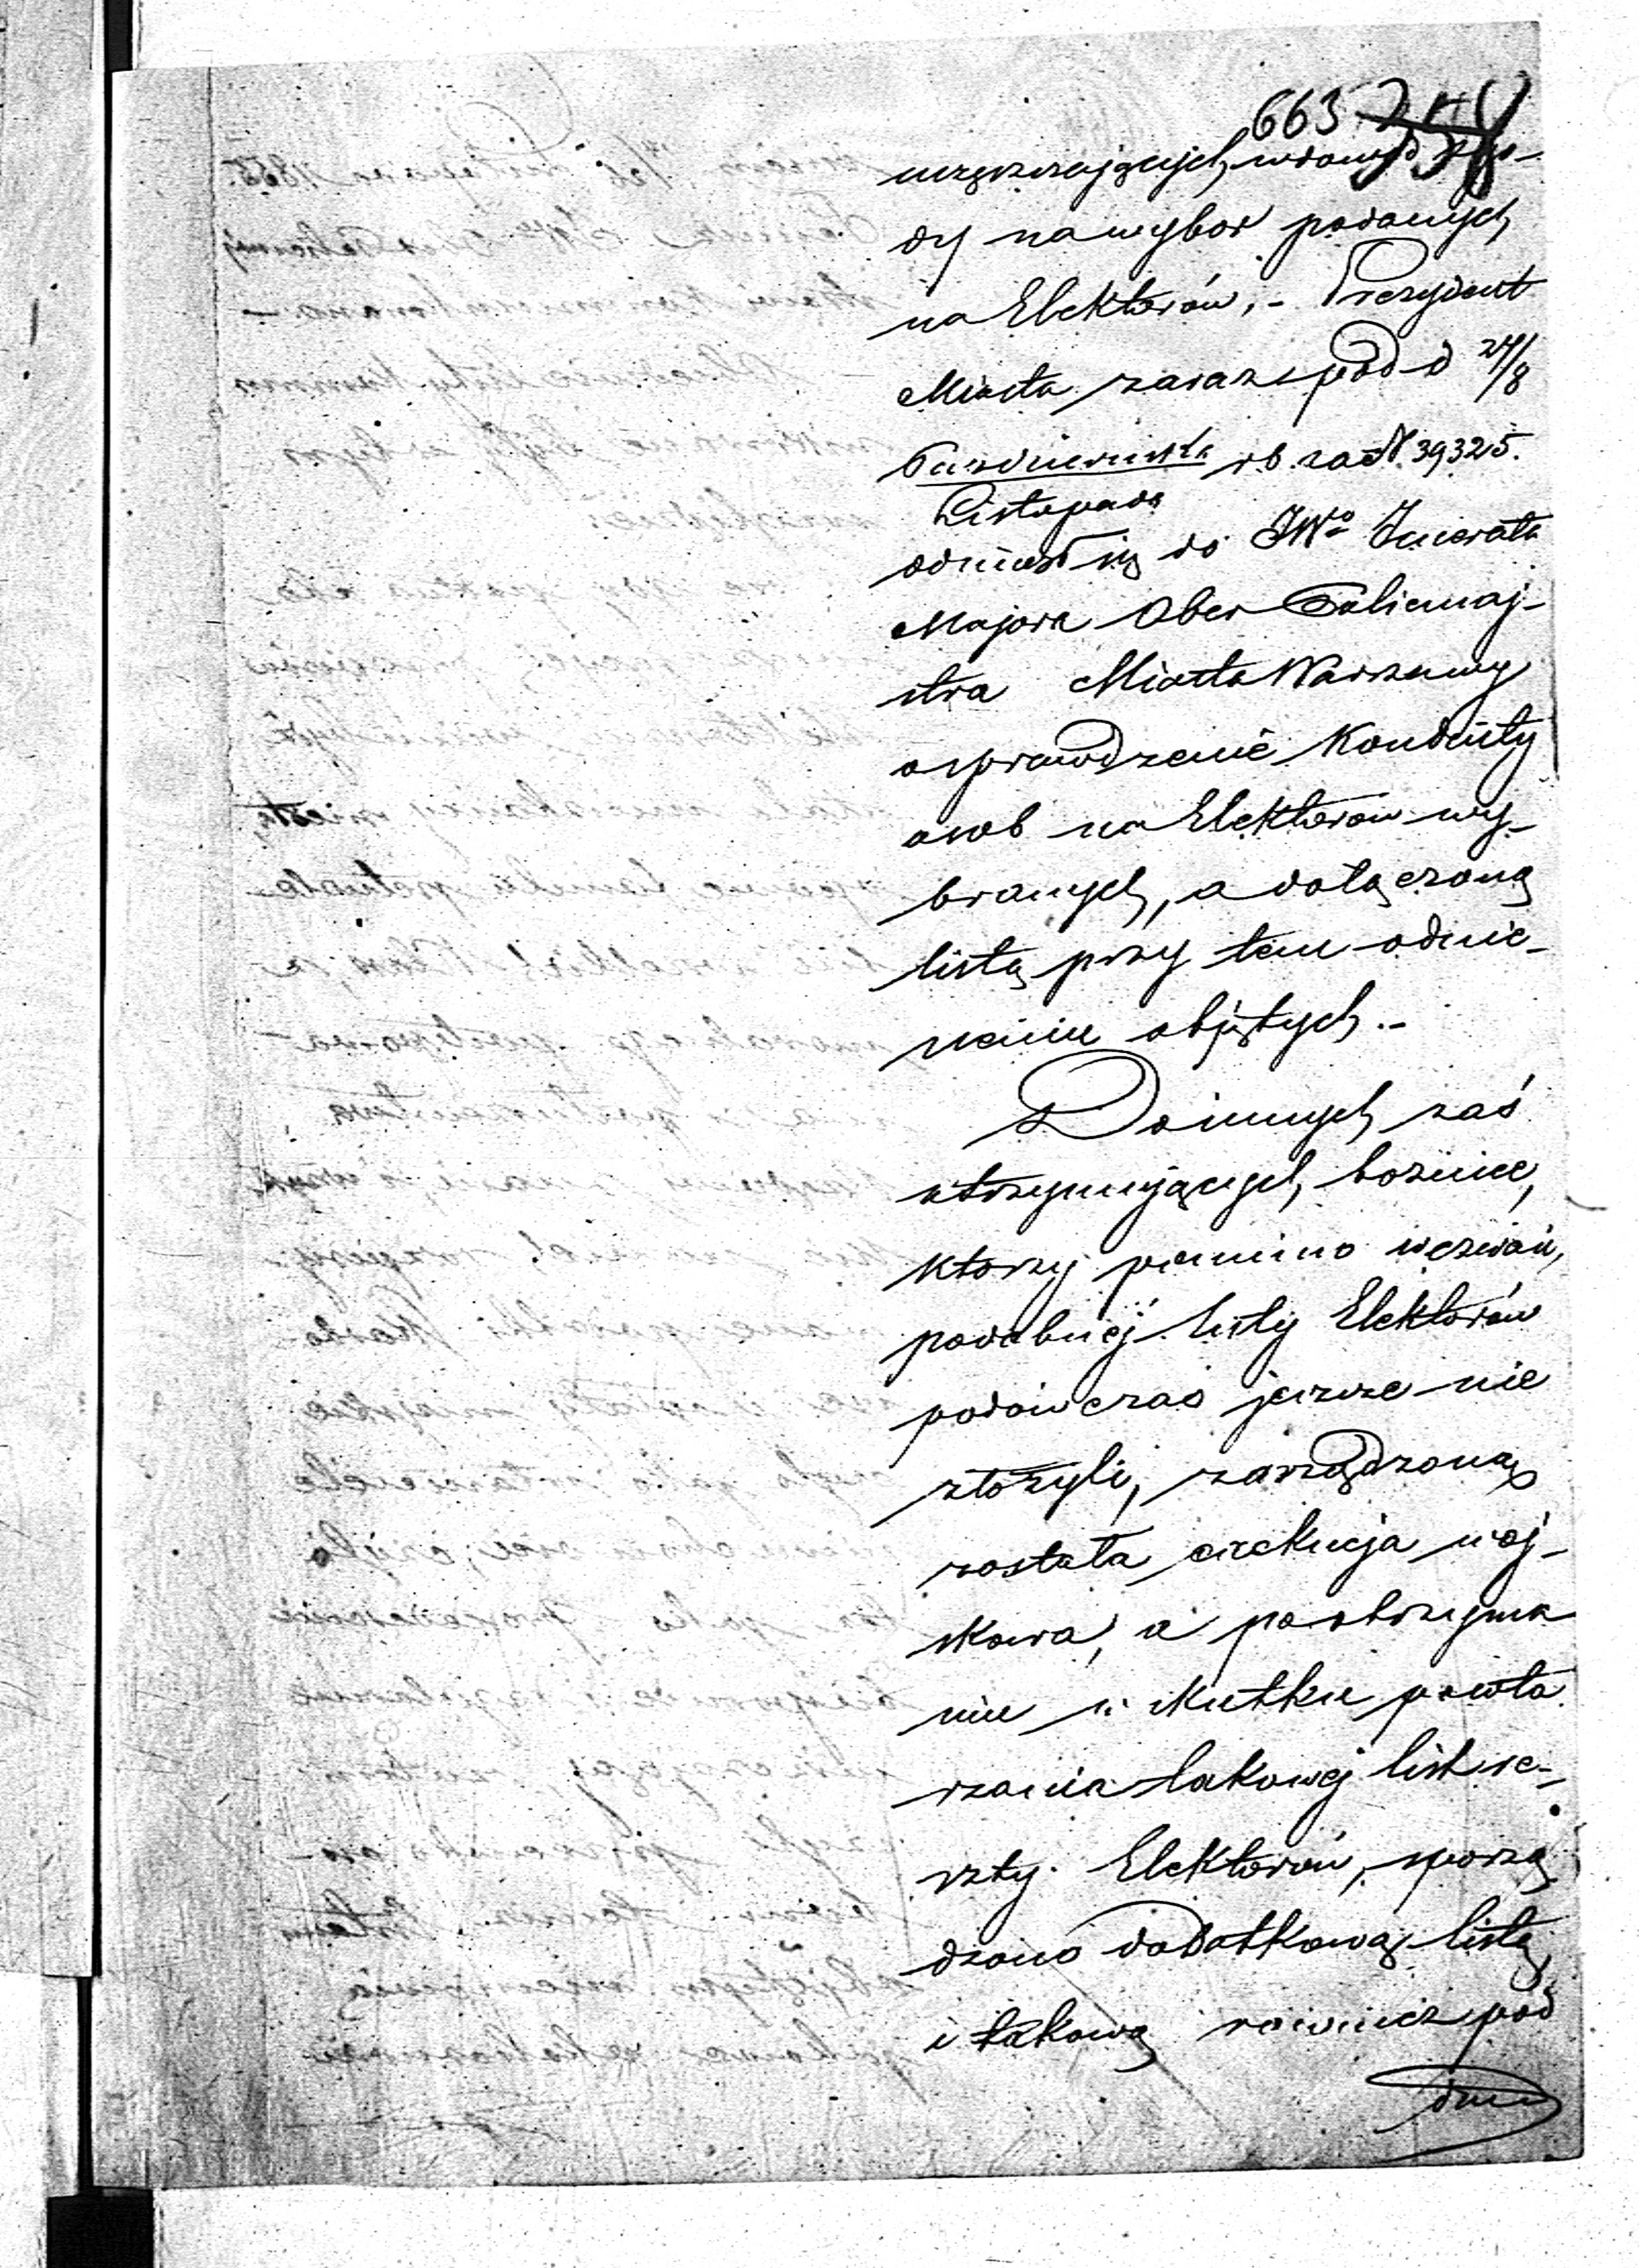 663 258
uczęszczających,
dy na wybor podanych
na Elektorów, - Prezydent
Miasta zaraz pod d 27/8
Pazdziernika rb. za N. 39325.
Listopada
odniosł się do JWo Jenerała
Majora Ober Policmaj-
stra Miasta Warszawy
o sprawdzenie Konduity
osob na Elektorow wy-
branych, a dołączoną
listą przy tem odnie-
sieniu objętych.-
Do innych zaś
utrzymujących boznice,
ktorzy pomimo wezwań,
podobnej listy Elektorów
podowczas jeszcze nie
złożyli, zarządzoną
została exekucja woj-
skowa, a po otrzyma
niu w skutku powta
rzania takowej list re-
szty Elektorów, sporzą
dzono dodatkową listę
i takową rownież pod
dniem